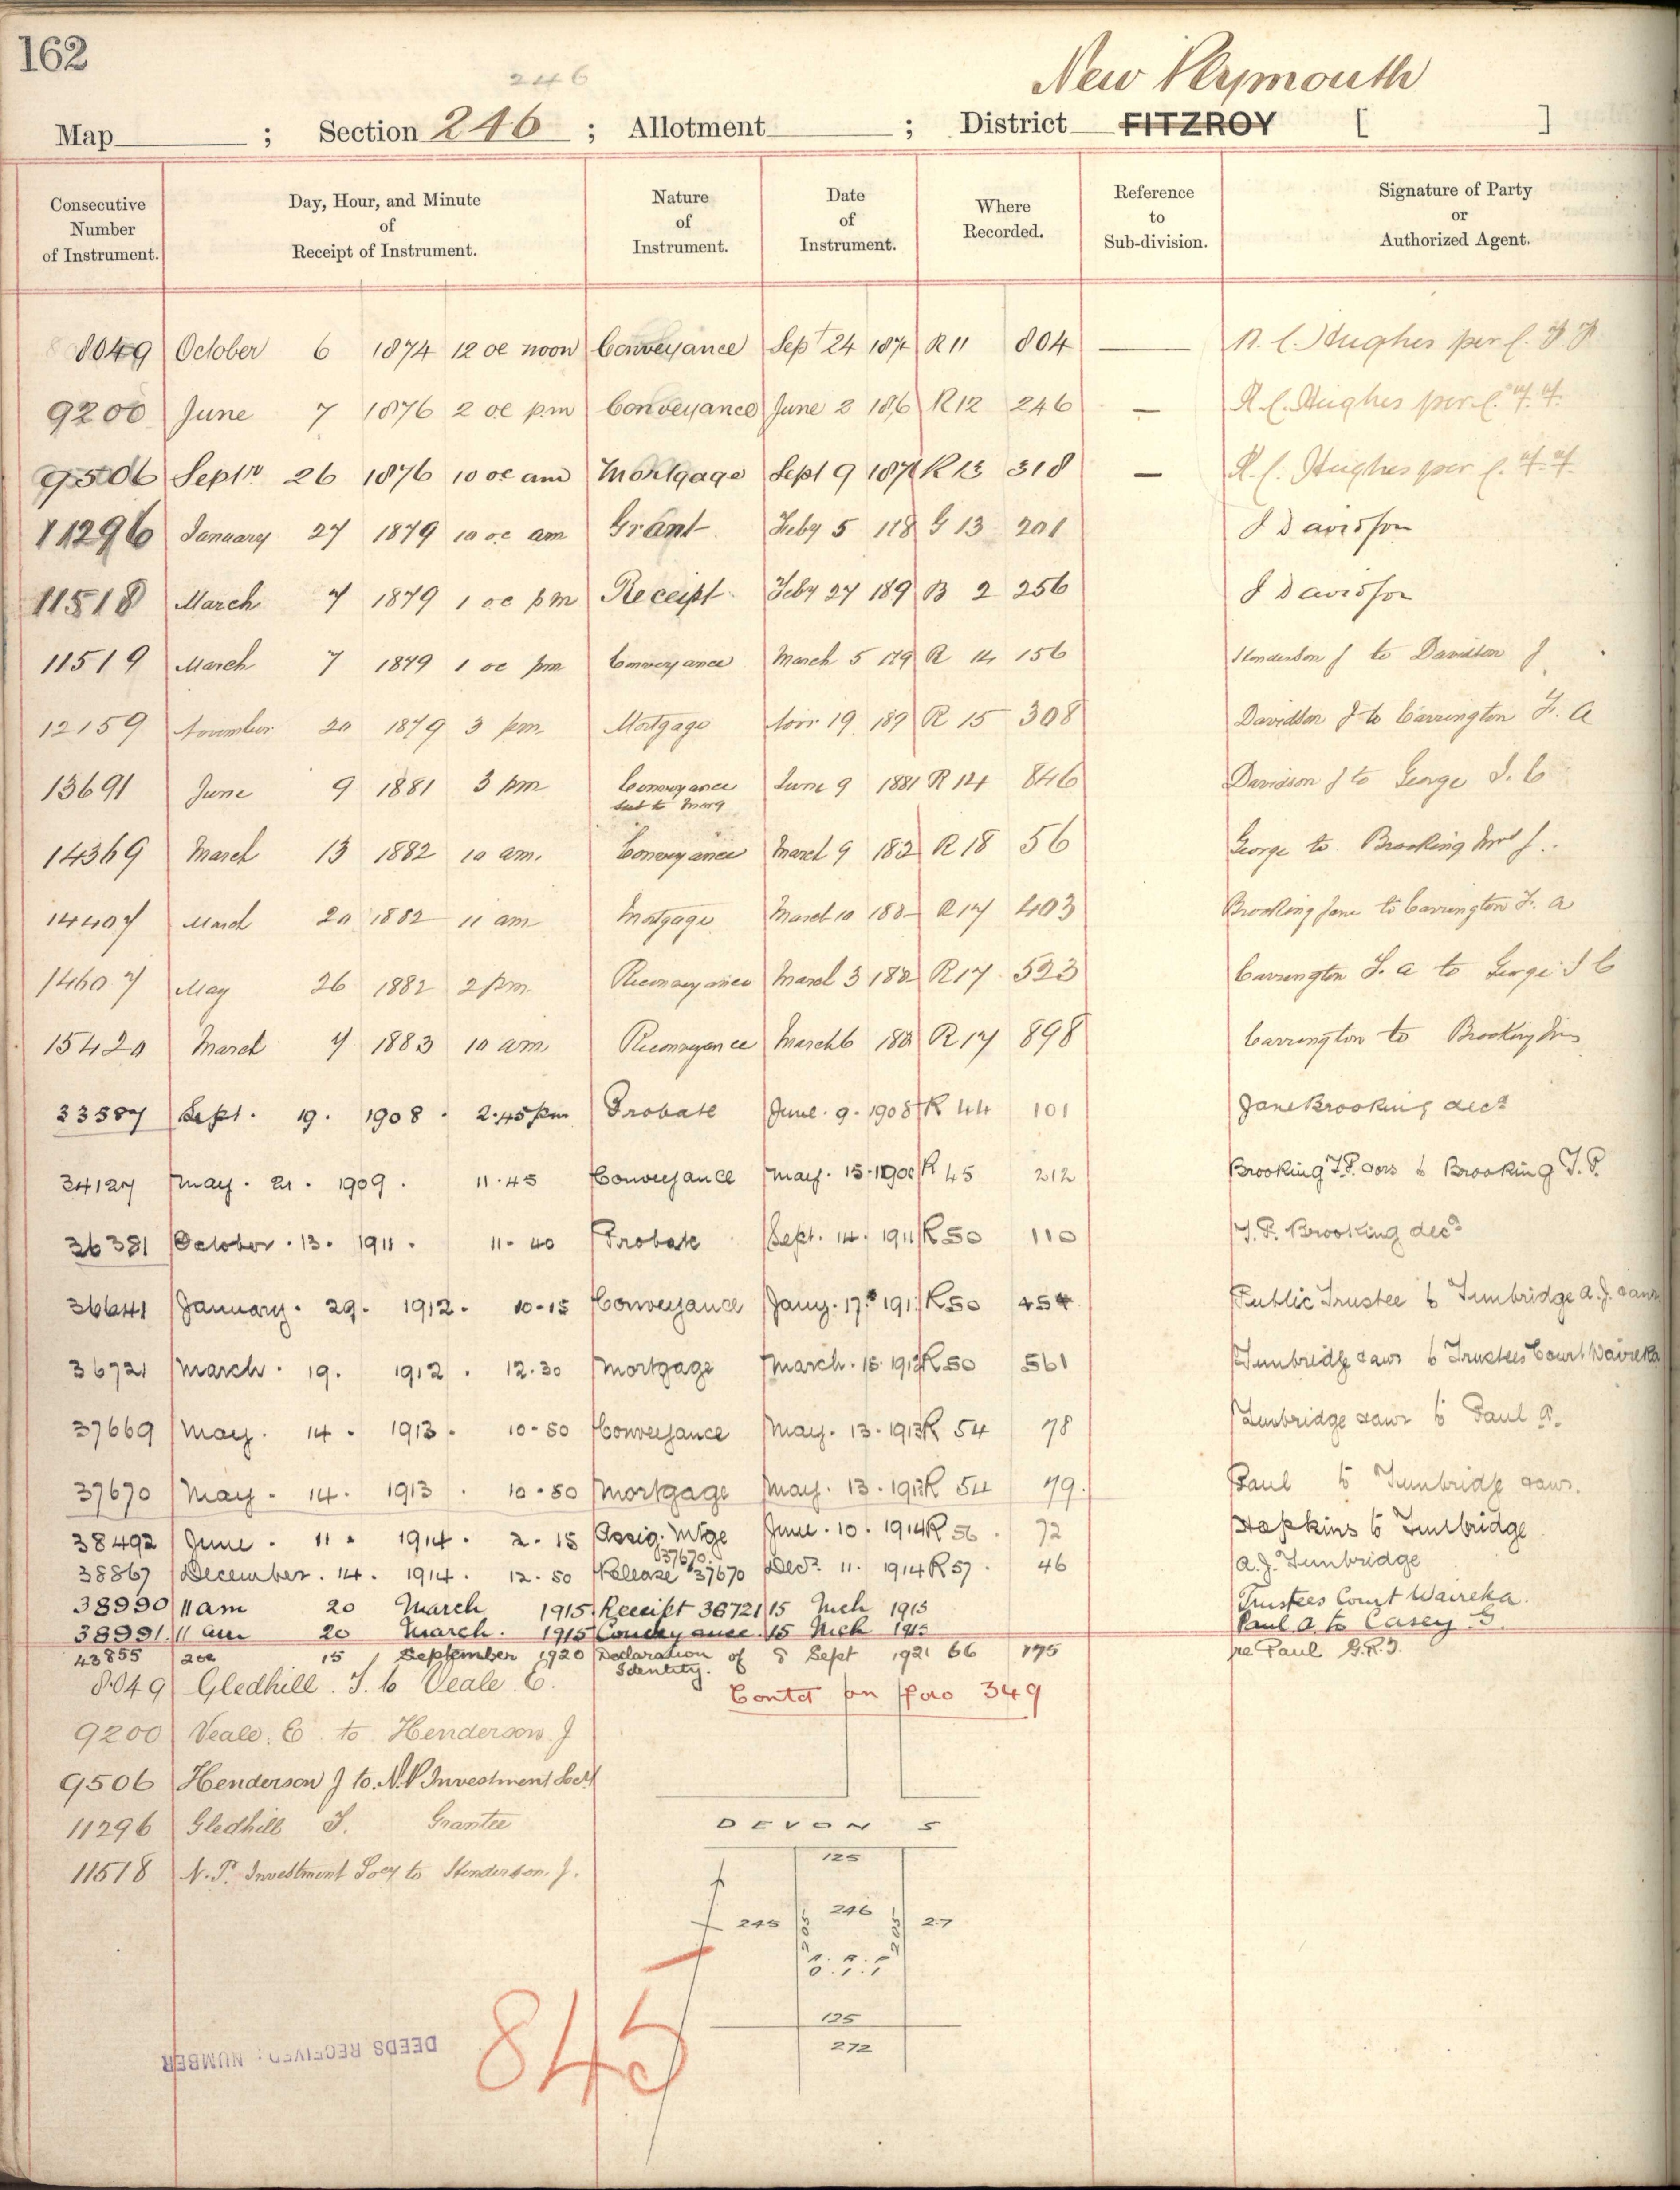 162
246
New Plymouth
Map ; Section 246 ; Allotment ; District FITZROY [ ]
Consecutive Number of Instrument. Day, Hour, and Minute of Receipt of Instrument. Nature of Instrument. Date of Instrument. Where Recorded. Reference to Sub-division. Signature of Party or Authorized Agent.
8049 October 6 1874 12 oc noon Conveyance Sept 24 187 R 11 804 — R. C. Hughes per C.
9200 June 7 1876 2 oc p.m Conveyance June 2 186 R12 246 — R. C. Hughes per C.
9506 Septr 26 1876 10 oc am Mortgage Sept 9 187 R 13 318 — R. C. Hughes per C.
11296 January 27 1879 10 oc am Grant Feby 5 118 G 13 201 J Davidson
11518 March 7 1879 1 oc pm Receipt Feby 27 189 B 2 256 J Davidson
11519 March 7 1879 1 oc pm Conveyance March 5 179 R 14 156 Henderson J to Davidson J
12159 November 20 1879 3 pm Mortgage Novr 19 189 R 15 308 Davidson J to Carrington F. A
13691 June 9 1881 3 pm Conveyance June 9 1881 R 14 846 Davidson J to George J. C
sub to Morg
14369 March 13 1882 10 am. Conveyance March 9 182 R 18 56 George to Brooking Mrs J.
14407 March 20 1882 11 am Mortgage March 10 188 R 17 403 Brooking Jane to Carrington F. A
14607 May 26 1882 2 pm Reconveyance March 3 188 R 17 523 Carrington F. A to George J C
15420 March 7 1883 10 am Reconveyance March 6 188 R 17 898 Carrington to Brooking Mrs
33587 Sept. 19. 1908. 2.45 pm Probate June. 9. 1908 R 44 101 Jane Brooking decd
34127 May. 21. 1909. 11.45 Conveyance May. 15. 190 R 45 212 Brooking T.P. aors to Brooking T. P.
36381 October. 13. 1911. 11-40 Probate Sept. 14. 1911 R 50 110 T. P. Brooking decd
36641 January. 29. 1912. 10-15 Conveyance Jany. 17. 191 R 50 454 Public Trustee to Tunbridge A. J. aanr
36721 March. 19. 1912. 12.30 Mortgage March. 15. 1912 R 50 561 Tunbridge aanr to Trustees Court Waireka
37669 May. 14. 1913. 10-50 Conveyance May. 13. 1913 R 54 78 Tunbridge aanr to Paul A.
37670 May. 14. 1913. 10.50 Mortgage May. 13. 191 R 54 79. Paul to Tunbridge aanr.
38492 June. 11. 1914. 2.15 Assig. Mtge June. 10. 1914 R 56. 72 Hopkins to Tunbridge
37670.
38867 December. 14. 1914. 12.50 Release 37670 Decr. 11. 1914 R 57. 46 A. J. Tunbridge
38990 11 am 20 March 1915 Receipt 36721 15 Mch 1915 Trustees Court Waireka.
38991. 11 am 20 March. 1915 Conveyance. 15 Mch 1915 Paul A to Casey G.
43855 2 oc 15 September 1920 Declaration of 8 Sept 192 66 175 re Paul G.R.J.
Identity.
8049 Gledhill J. to Veale E.
Contd on foro 349
9200 Veale. E to Henderson J
9506 Henderson J to N.P Investment Socy
11296 Gledhill J. Grantee
11518 N. P. Investment Socy to Henderson. J.
DEVON S
125
246
245
27
205
205
125
272
845
DEEDS RECEIVED: NUMBER